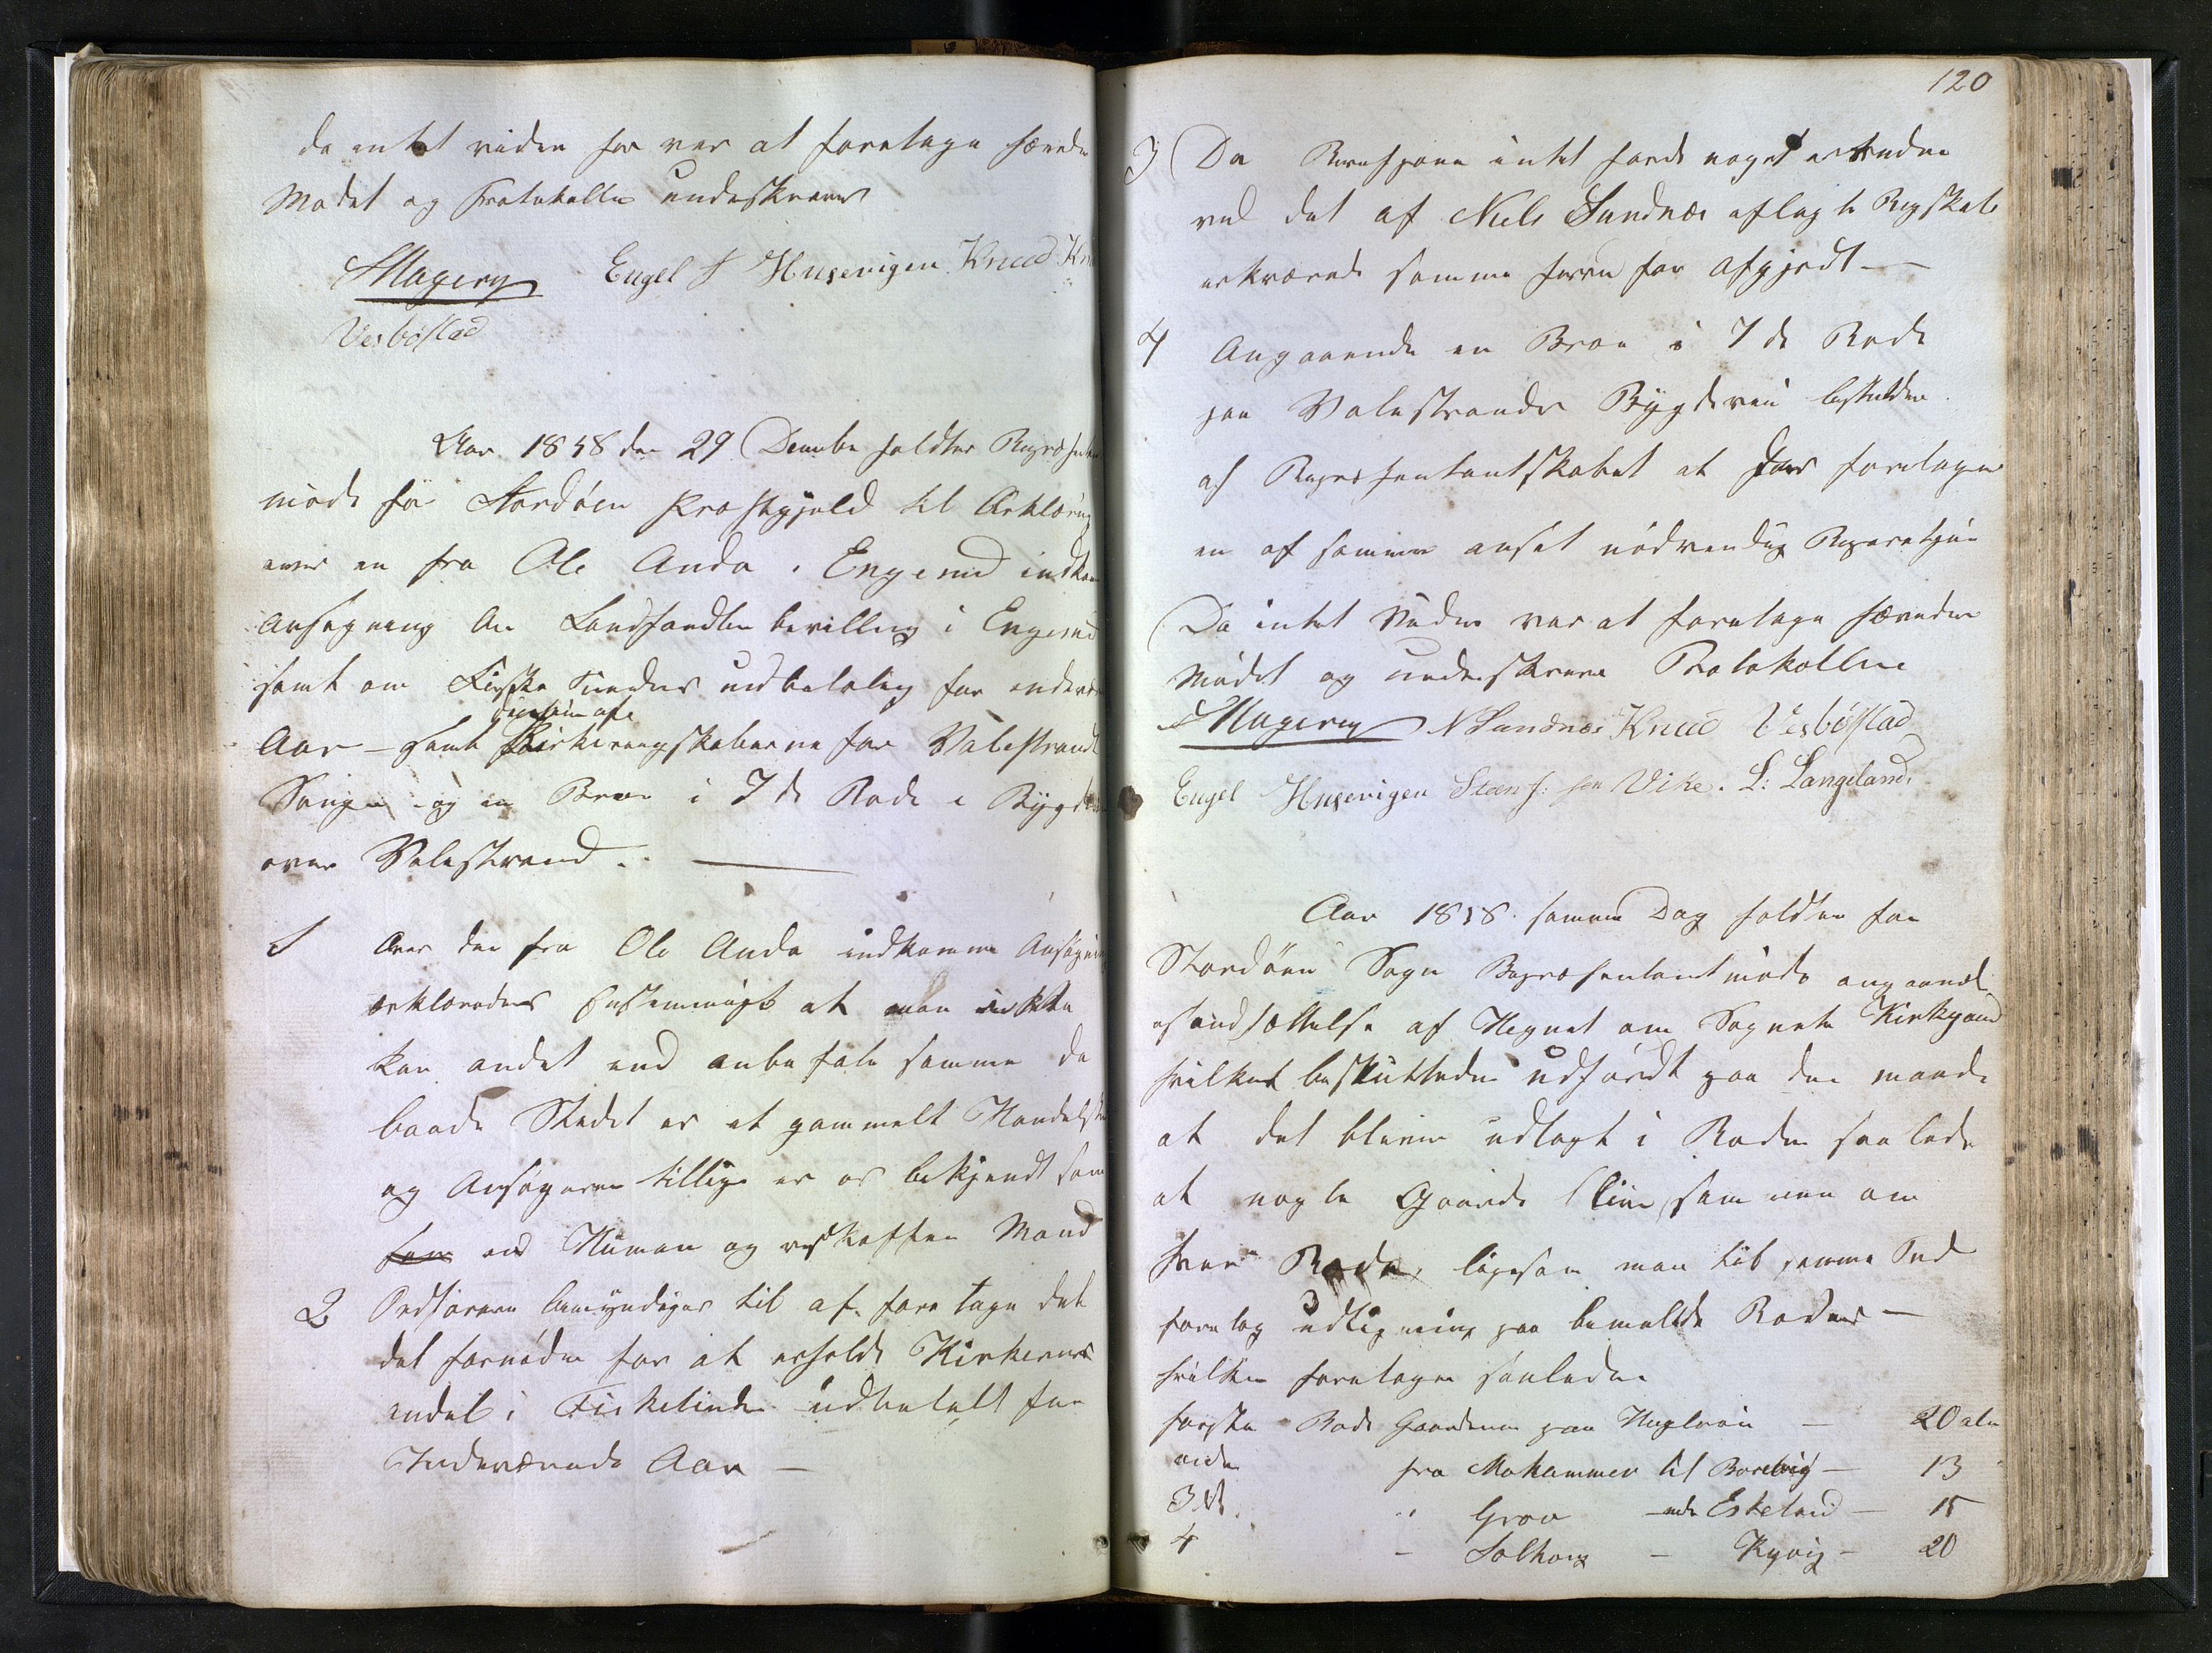 da intet viden for var at foretage hævedes
Mødet og Protokollen undeskreves
SMagerøy Engel J Husevigen Knud Kn
Vesbøstad
Aar 1858 den 29 Decembr holdtes Repræsentant
møde før Stordøen Præstegjeld til Erklæring
over en fra Ole Anda i Engesund indkom
Ansøgning om Landhandler bevilling i Engesund
samt om Fiske Tiendes udbetaling for indevær
Aar – samt Kirkeregnskaberne for Valestrand
Sougn – og en Broe i 7de Rode i Bygdev
over Valestrand. —
1 Over den fra Ole Anda indkomne Ansøgning
erklæredes Enstemmigt at man ikke
kan andet end anbefale samme da
baade Stedet er et gammelt Handelsted
og Ansøgeren tillige er os bekjendt som
en Human og retskaffen Mand
2 Ordføreren bemyndiges til at foretage det
det fornødne for at erholde Kirkernes
andel i Fisketiende udbetalt for
Indeværende Aar —
120
3 Da Revisjonen intet havde noget at erindre
ved det af Niels Sundnæs aflagte Regskab
erkværedes samme herved for afgjordt —
4 Angaaende en Broe i 7de Rode
paa Valestrands Bygdevei besluttedes
af Repræsentantskabet at foretages
en af samme anset nødvendig Reparasjon
Da intet Viden var at foretage hævedes
Mødet og underskreve Protokollen
SMagerøy N Sundnæs Knud Vesbøstad
Engel Husevigen Steen J: søn Vike. L: Langeland.
Aar 1858. samme Dag holdtes for
Stordøen Sogn Repræsentantmøde angaaende
istandsættelse af Hegnet om Sognets Kirkegaard
hvilket besluttedes udført paa den maade
at det bliver udlagt i Roder saalede
at nogle Gaarde blive sammen om
hver Rode, ligesom man til samme Tid
foretog udligning paa bemeldte Roder —
hvilken foretoges saaledes
første Rode Gaardene paa Hugløen — 20 aln
anden fra Mehammer til Borevig — 13
3de " Grov — Eskeland — 15
4 – Solhoug – Kyvig – 20